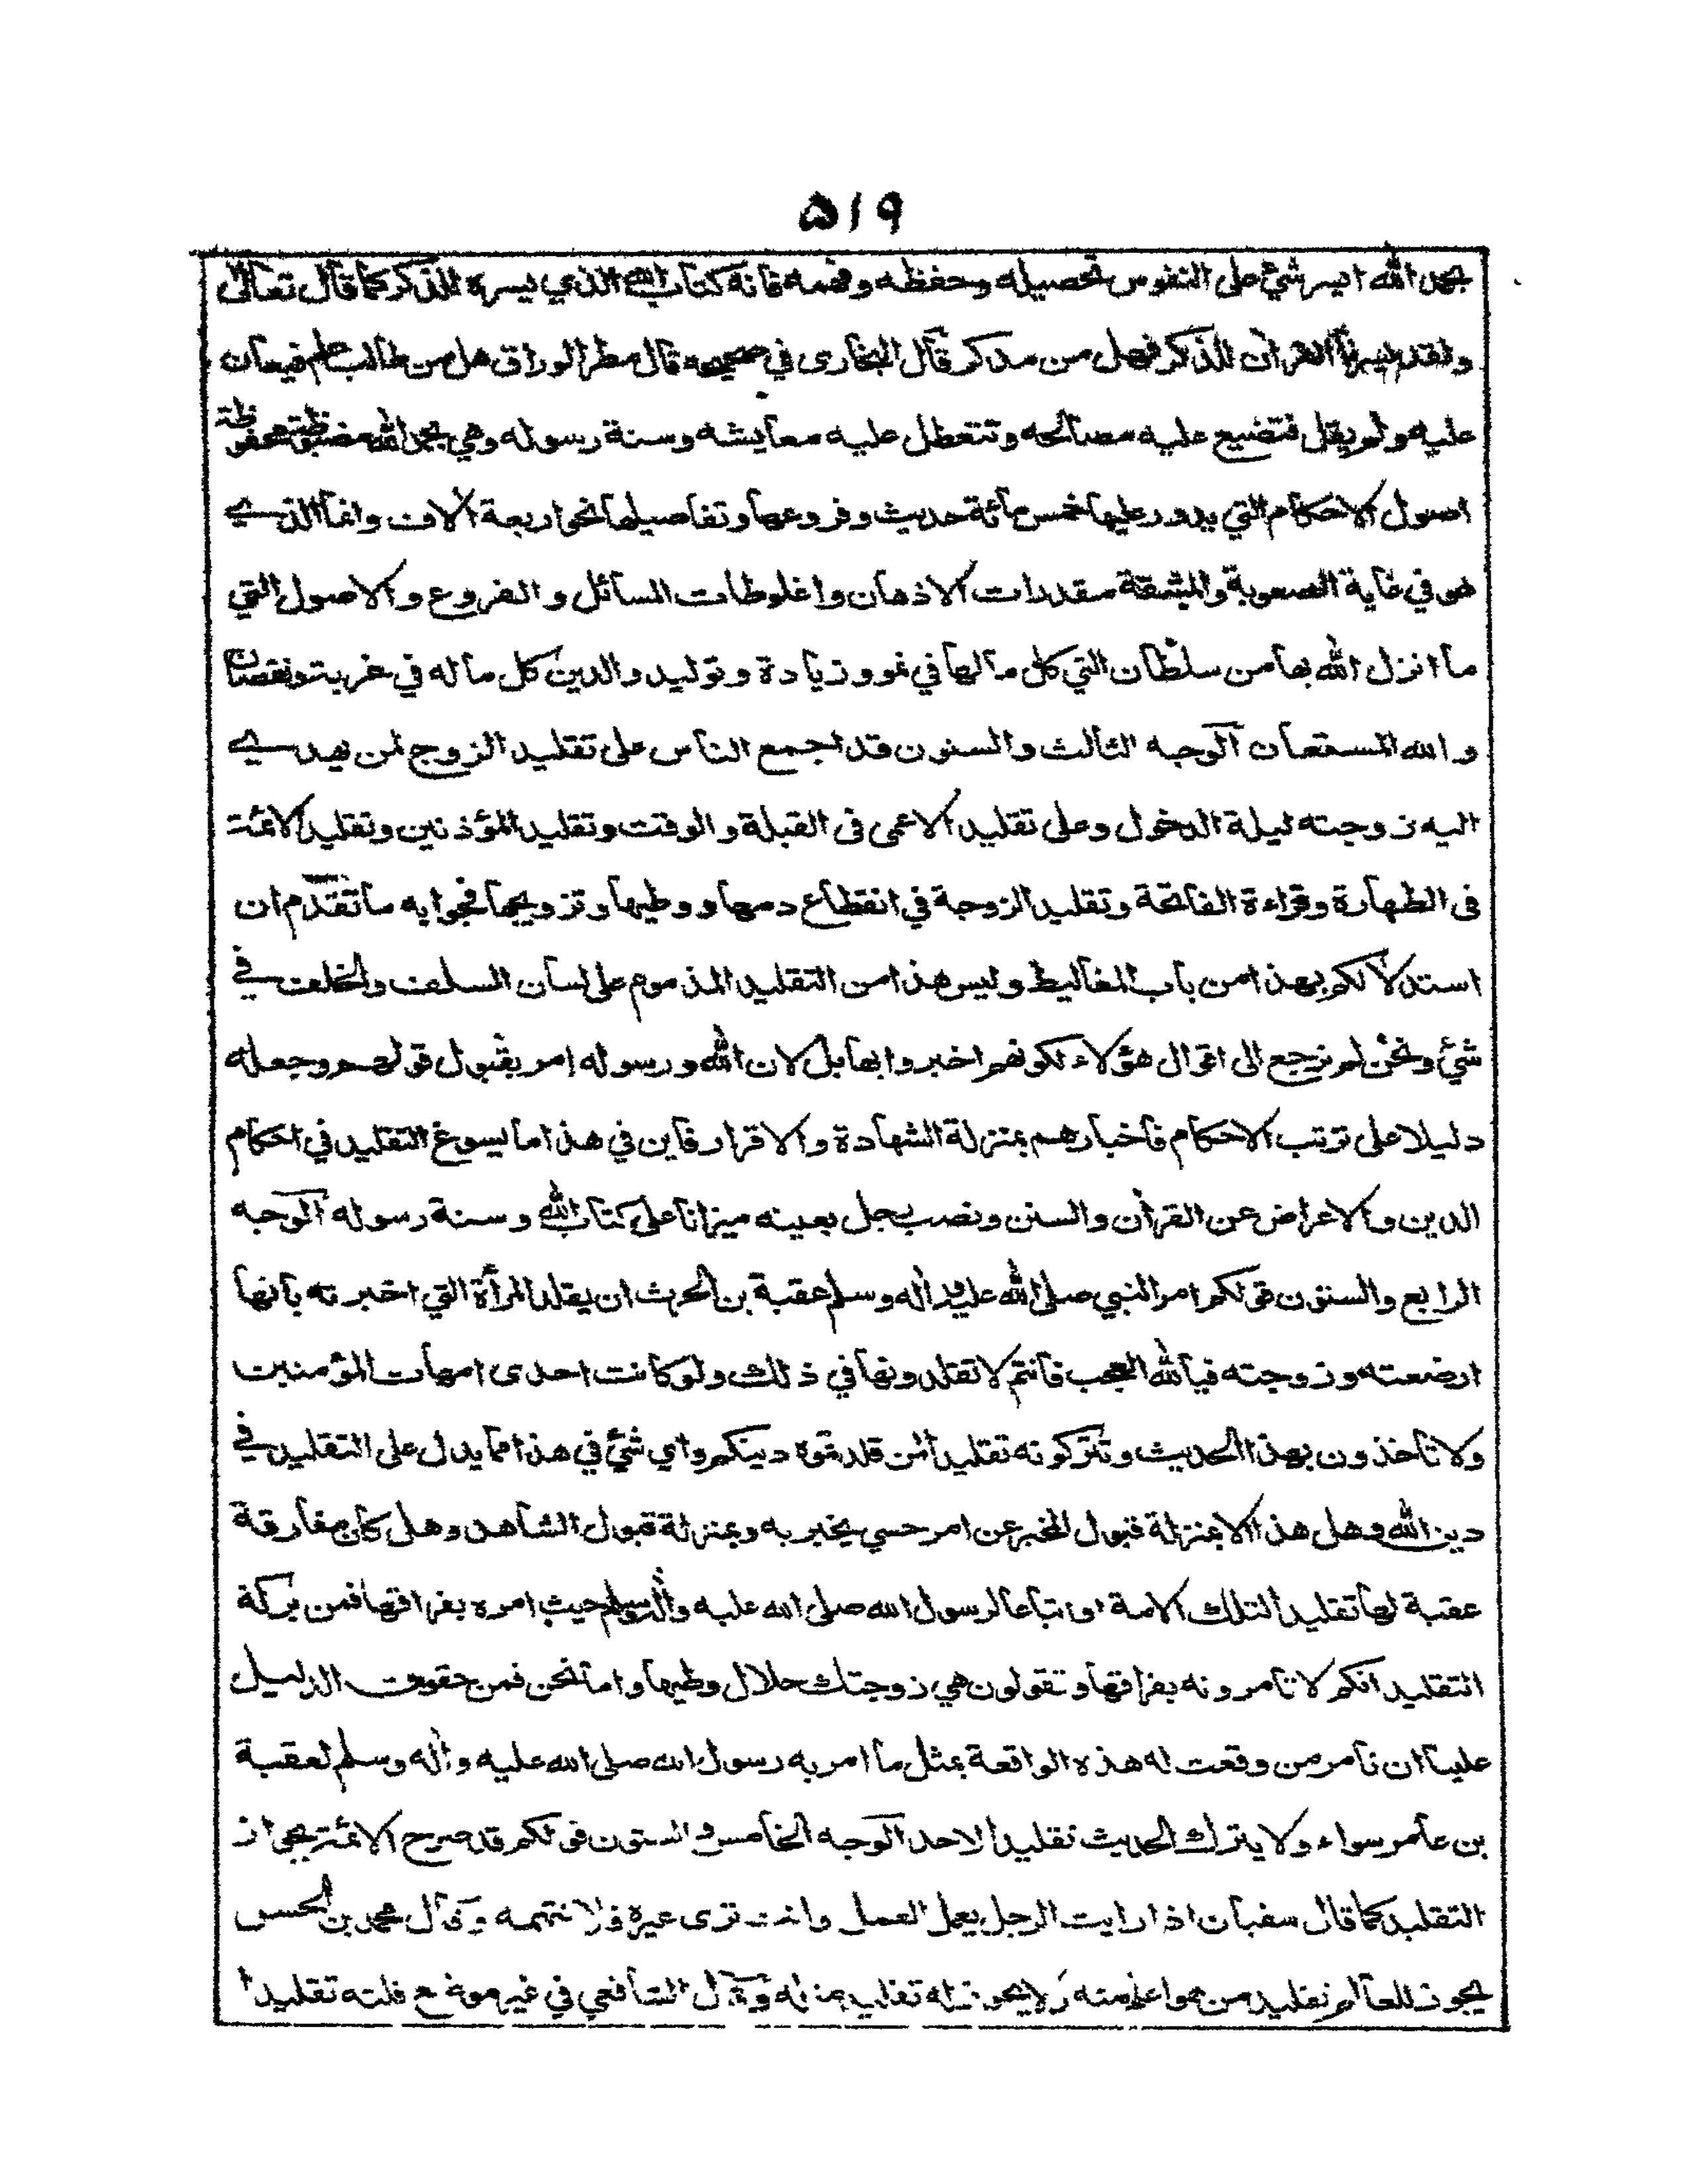 ۵۱۹
بحمد الله ايسر شئ على النفوس تحصيله وحفظه وفهمه فانه كتاب الله الذي يسره للذكر كما قال تعالى
ولقد يسرنا القرآن للذكر فهل من مدكر قال البخارى في صحيحه قال مطر الوراق هل من طالب علم فيعان
عليه ولم يقل فتضيع عليه مصالحه وتتعطل عليه معايشه وسنة رسوله وهي بحمد الله مضبوطة محفوظة
اصول الاحكام التي يدور عليها خمس مائة حديث وفروعها وتفاصيلها نحو اربعة آلاف وانما الذي
هو في غاية الصعوبة والمشقة مقدرات الاذهان واغلوطات المسائل والفروع والاصول التي
ما انزل الله بها من سلطان التي كل ما لها في نمو وزيادة وتوليد والدين كل ماله في غربة ونقصان
والله المستعان الوجه الثالث والستون قد اجمع الناس على تقليد الزوج لمن يهدي
اليه زوجته ليلة الدخول وعلى تقليد الاعمى فى القبلة والوقت وتقليد المؤذنين وتقليد الائمة
فى الطهارة وقراءة الفاتحة وتقليد الزوجة في انقطاع دمها ووطيها وتزويجها فجوابه ما تقدم ان
استدلالكم بهذا من باب المغاليط وليس هذا من التقليد المذموم على لسان السلف والخلف في
شئ ونحن لم نرجع الى اقوال هؤلاء لكونهم اخبروا بها بل لان الله ورسوله امر بقبول قولهم وجعله
دليلا على ترتب الاحكام فاخبارهم بمنزلة الشهادة والاقرار فاين في هذا ما يسوغ التقليد في احكام
الدين والاعراض عن القرآن والسنن ونصب رجل بعينه ميزانا على كتاب الله وسنة رسوله الوجه
الرابع والستون قولكم امر النبي صلى الله عليه وآله وسلم عقبة بن الحرث ان يقلد المرأة التي اخبرته بانها
ارضعته وزوجته فيالله العجب فانتم لا تقلدونها في ذلك ولو كانت احدى امهات المؤمنين
ولا تاخذون بهذا الحديث وتتركونه تقليدا لمن قلدتموه دينكم واي شئ في هذا مما يدل على التقليد في
دين الله وهل هذا الا بمنزلة قبول المخبر عن امر حسي يخبر به وبمنزلة قبول الشاهد وهل كان مفارقة
عقبة لها تقليدا لتلك الامة او اتباعا لرسول الله صلى الله عليه وآله وسلم حيث امره بفراقها فمن بركة
التقليد انكم لا تامرونه بفراقها وتقولون هي زوجتك حلال وطيها واما نحن فمن حقوق الدليل
علينا ان نامر من وقعت له هذه الواقعة بمثل ما امر به رسول الله صلى الله عليه وآله وسلم لعقبة
بن عامر سواء ولا يترك الحديث تقليدا لاحد الوجه الخامس والستون قولكم قد صرح الائمة بجواز
التقليد كما قال سفيان اذا رايت الرجل يعمل العمل وانت ترى غيره فلا تتهمه وقال محمد بن الحسن
يجوز للعالم تقليد من هو اعلم منه ولا يجوز له تقليد مثله وقال الشافعي في غير موضع قلته تقليدا